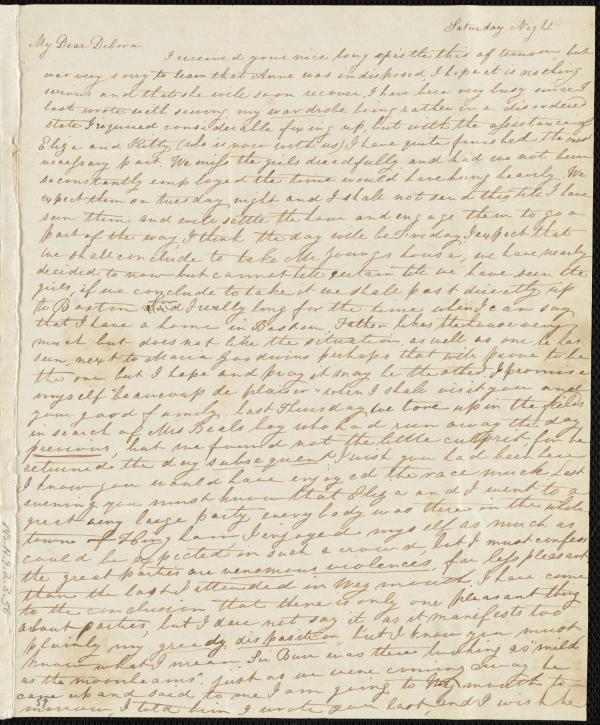 Saturday Night
My Dear Debora
I received your nice long epistle this afternoon but
was very sorry to learn that Anne was indisposed, I hope it is nothing
serious and that she will soon recover, I have been very busy since I
last wrote with sewing my wardrobe being rather in a disordered
state I required considerable fixing up, but with the assistance of
Eliza and Kitty (who is now with us) I have quite finished the most
necessary part. We miss the girls dreadfully and had we not been
so constantly employed the time would have hung heavily. We
expect them on tuesday night and I shall not send this till I have
seen them and will settle the hour and engage them to go a
part of the way I think the day will be Friday, I expect that
we shall conclude to take Mr Youngs house, we have nearly
decided to now but cannot tell certain till we have seen the
girls, if we conclude to take it we shall past directly up
to Boston And I really long for the time when I can say
that I have a home in Boston, Father likes the house very
much but does not like the situation as well as one he has
seen next to Maria Goodwins perhaps that will prove to be
the one but I hope and pray it may be the other. I promise
myself "beaucoup de plaisir" when I shall visit you and
your good family. Last Thursday we tore up in the fields
in search of Mrs Beals boy who had run away the day
previous, but we found not the little culprit for he
returned the day subsequent I wish you had been here
I know you would have enjoyed the race much Last
evening you must know that Eliza and I went to a
great very large party every body was there in the whole
town of Hingham I enjoyed myself as much as
could be expected in such a crowd, but I must confess
the great parties are venemous violences, far less pleasant
than the last I attended in Weymouth. I have come
to the conclusion that there is only one pleasant thing
about parties, but I dare not say it as it manifests too
plainly my greedy disposition, but I know you must
know what I mean. Sir Burr was there looking as mild
as the moonbeams". just as we were coming away he
came up and said to me I am going to Weymouth to-
morrow, I told him I wrote you last and I wish he
59
Ms.A.9.2.3.58